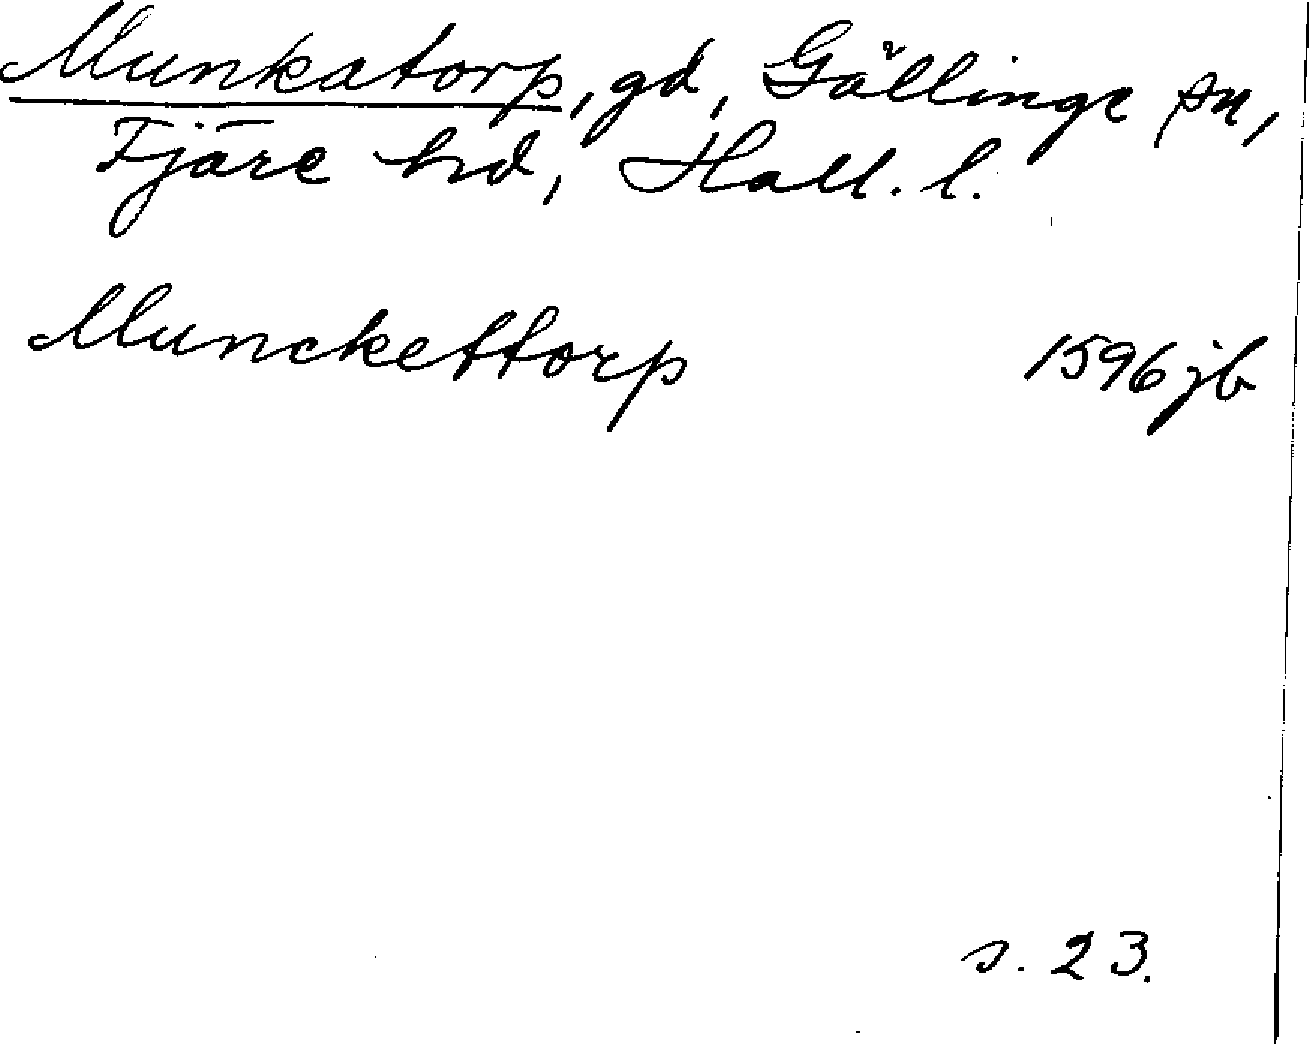 Munkatorp, gd, Gällinge sn,
Fjäre hd, Hall. l.
Munckettorp 1596 jb
s. 23.